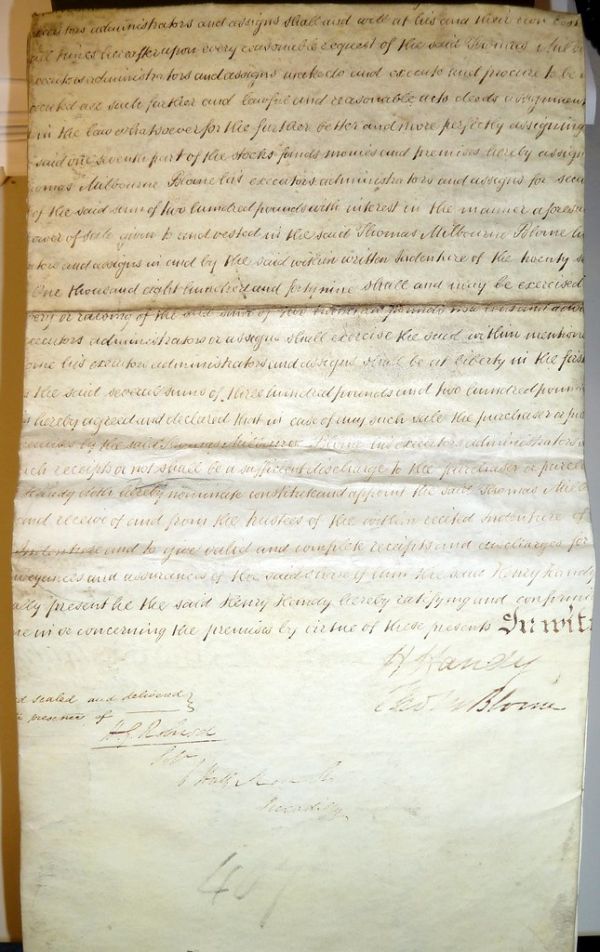 executors administrators and assigns shall and will at his and their own cost
all times hereafter upon every reasonable request of the said Thomas Milb
executors administrators and assigns make do and execute and procure to be m
executed all such further and lawful and reasonable acts deeds assignment
in the law whatsoever for the further better and more perfectly assigning
said one seventh part of the stocks funds monies and premises hereby assign
homas Milbourne Blome his executors administrators and assigns for secu
of the said sum of two hundred pounds with interest in the manner aforesa
ower of sale given to and vested in the said Thomas Milbourne Blome hi
ators and assigns in and by the said within written Indenture of the twenty s
One thousand eight hundred and forty nine shall and may be exercised
ery or raising of the said sum of two hundred pounds
xecutors administrators or assigns shall exercise the said within mentione
ome his executors administrators and assigns shall be at liberty in the first
the said several sums of three hundred pounds and two hundred pound
is hereby agreed and declared that in case of any such sale the purchaser or pur
remises by the said Thomas Milbourne Blome his executors administrators
uch receipts or not shall be a sufficient discharge to the purchaser or purch
Handy doth hereby nominate constitute and appoint the said Thomas Milb
and receive of and from the trustees of the within recited Indenture of
Indenture and to give valid and complete receipts and discharges for
nveyances and assurances of the said him the said Henry Handy
ally present he the said Henry Handy hereby ratifying and confirmin
ne in or concerning the premises by virtue of these presents In witn
H Handy
Thos. M Blome
ed sealed and delivered
presence of
Piccadilly
407